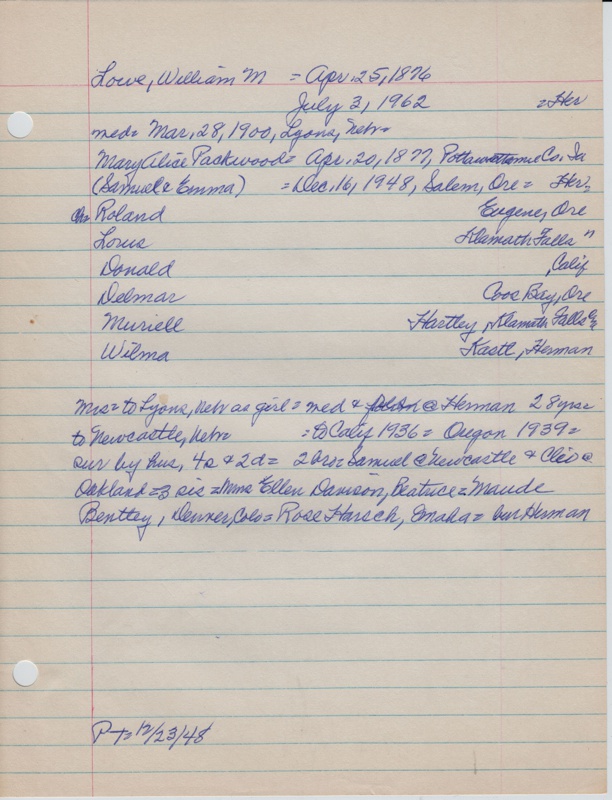 Lowe, William M = Apr. 25, 1876
July 3, 1962 = Her
med = Mar, 28, 1900, Lyons, Nebr =
Mary Alice Packwood = Apr. 20, 1877, Pottawattamie Co. Ia
(Samuel & Emma) = Dec. 16, 1948, Salem, Ore = Her,
Ch = Roland Eugene, Ore
Lorus Klamath Falls "
Donald , Calif
Delmar Coos Bay, Ore
Muriell Hartley, Klamath Falls
Wilma Kastl, Herman
Mrs = to Lyons, Nebr as girl = med & @ Herman 28 yrs =
to Newcastle, Nebr = = to Calif 1936 = Oregon 1939 =
sur by hus, 4s & 2d = 2 bro = Samuel @ Newcastle & @
Oakland = 3 sis = Mrs Ellen Davison, Beatrice = Maude
Bentley, Denver, Colo = Rose Harsch, Omaha = bur Herman
PT = 12/23/48